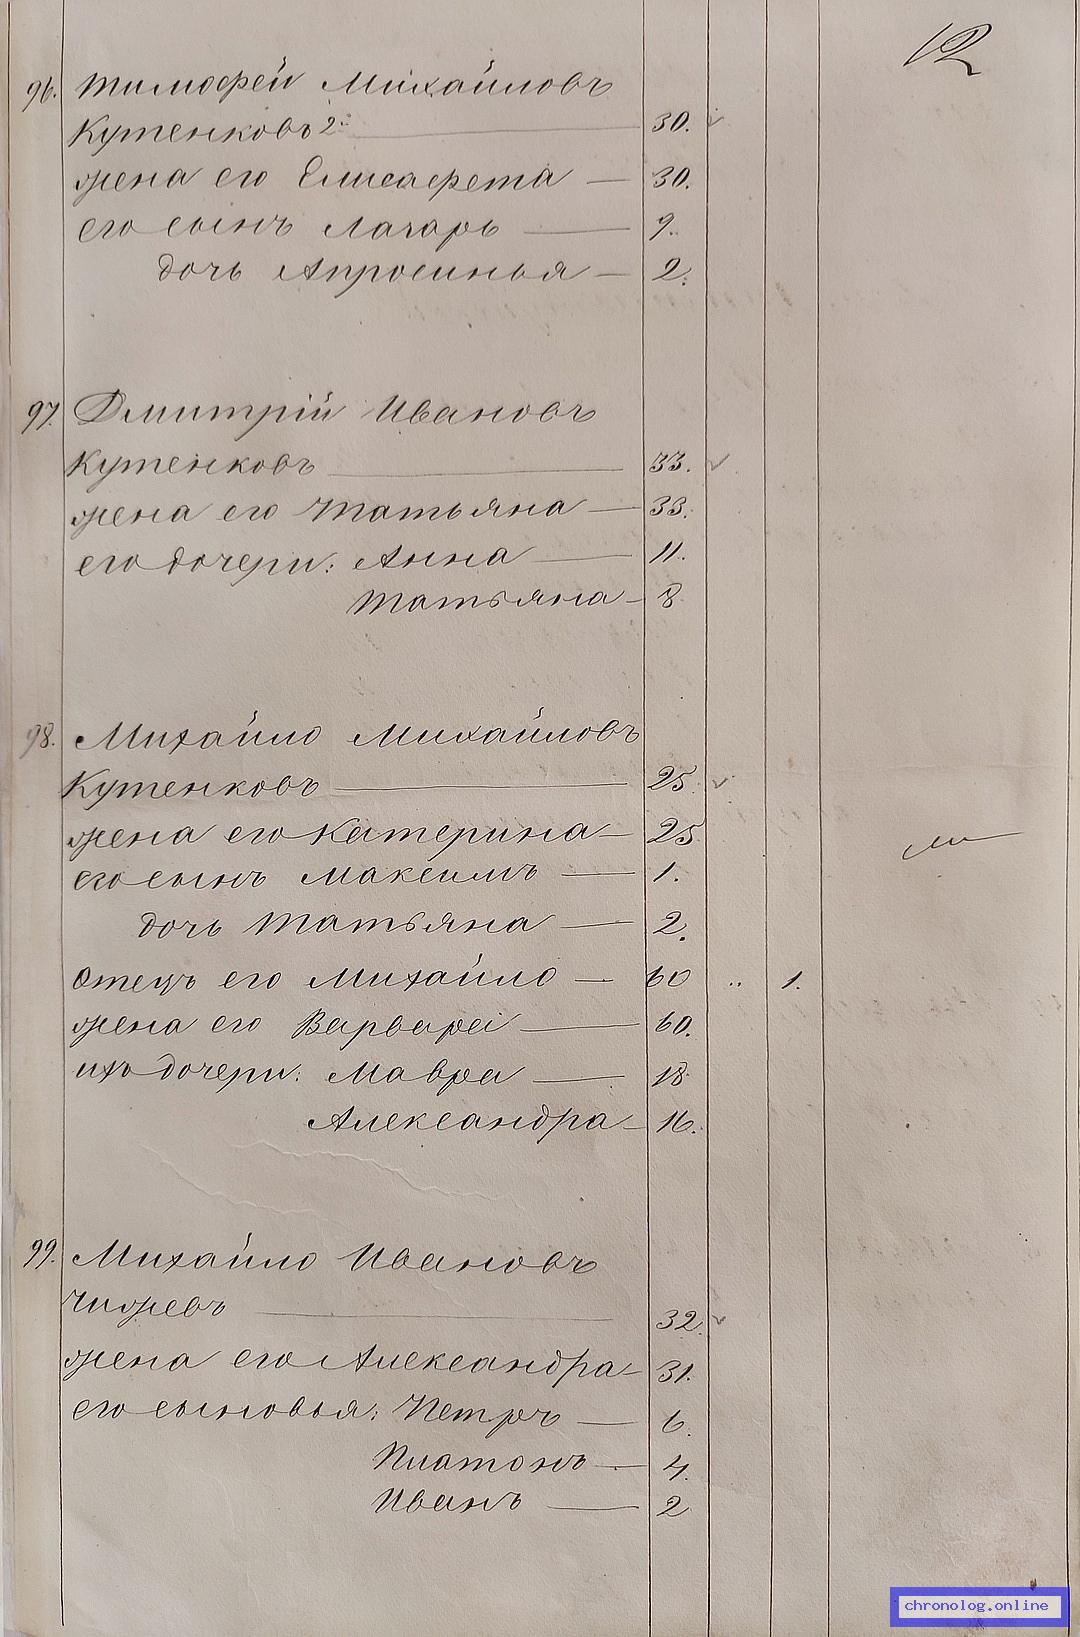 12
96. Тимофей Михайловъ
Кутенковъ 2й 30.
жена его Елисафета — 30.
его сынъ Лазарь — 9.
дочь Апросинья — 2.
97. Дмитрій Ивановъ
Кутенковъ 33.
жена его Татьяна — 33.
его дочери: Анна — 11.
Татьяна — 8
98. Михайло Михайловъ
Кутенковъ — 25.
жена его Катерина — 25
его сынъ Максимъ — 1.
дочь Татьяна — 2.
Отецъ его Михайло — 60 .. 1.
жена его Варвара — 60.
ихъ дочери: Мавра — 18
Александра — 16.
99. Михайло Ивановъ
Чижевъ 32.
жена его Александра — 31.
его сыновья: Петръ — 6.
Платонъ — 4.
Иванъ — 2
chronolog.online